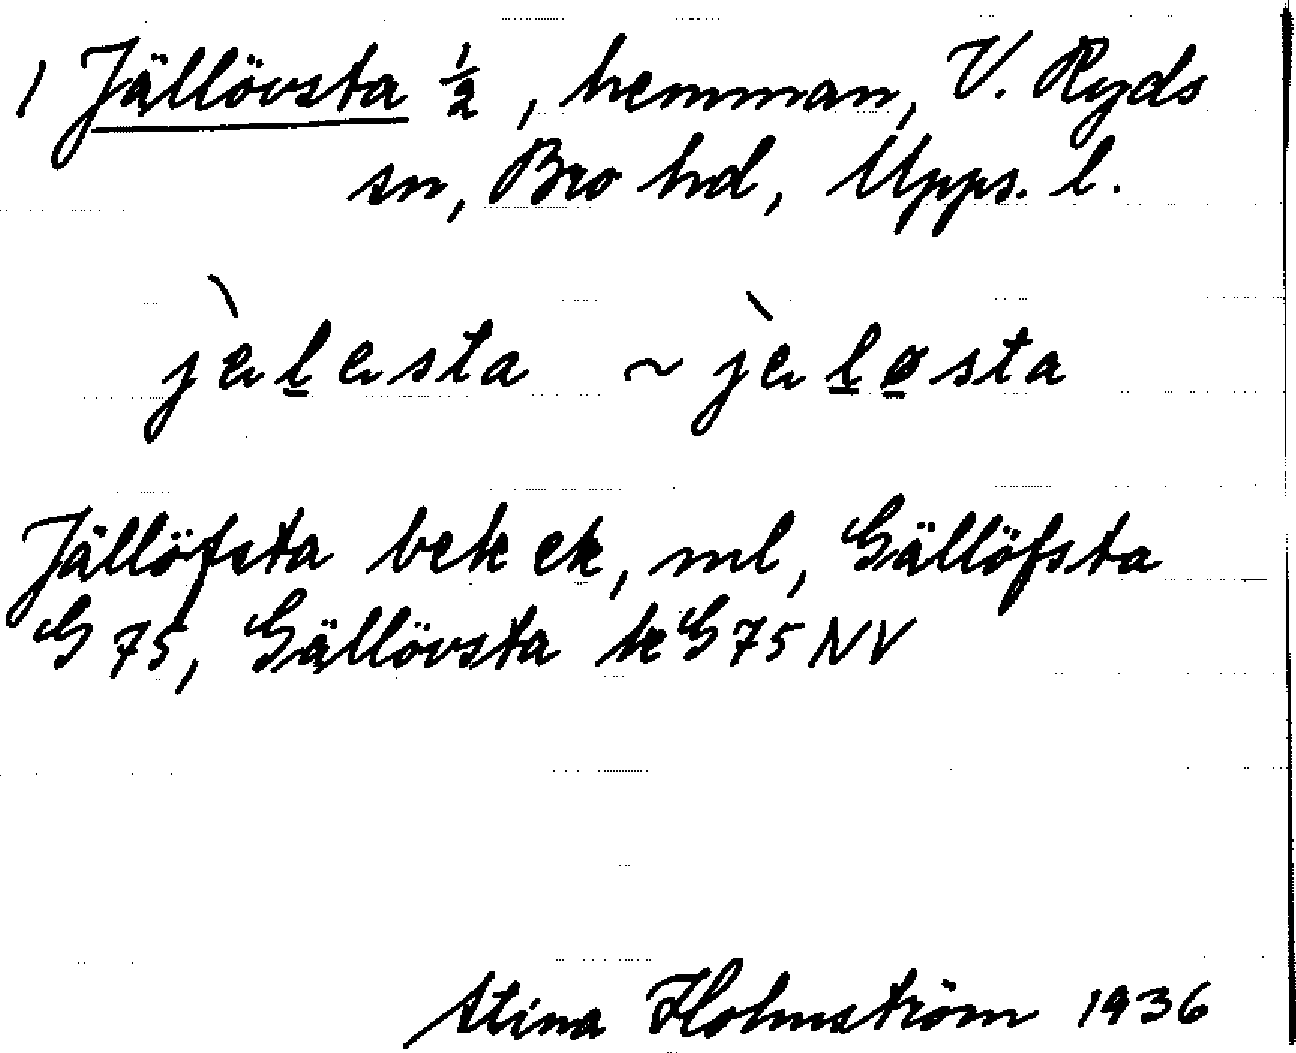 1 Jällövsta ½, hemman, V. Ryds
sn, Bro hd, Upps. l.
jèlesta ~ jèløsta
Jällöfsta bek ek, ml, Gällöfsta
G 75, Gällövsta k G 75 NV
Stina Holmström 1936